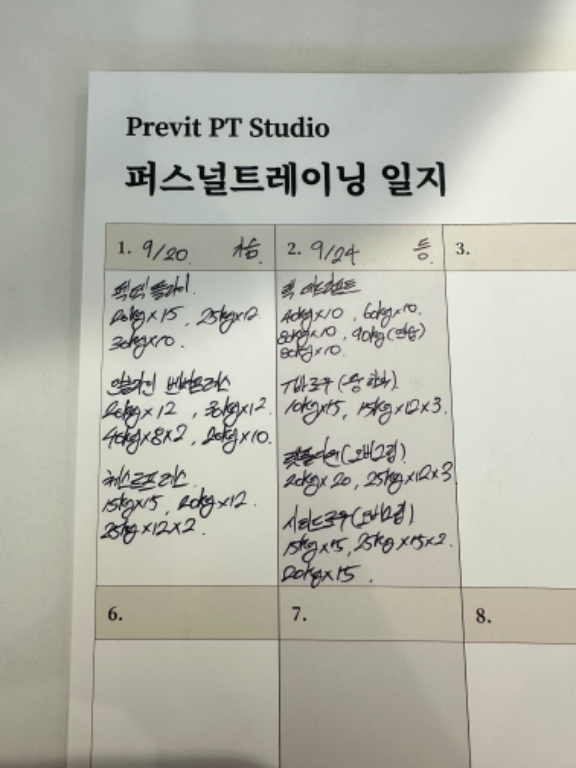 Previt PT Studio
퍼스널트레이닝 일지
1. 9/20 가슴
2. 9/24 등
3.
펙덱 플라이
20kg×15, 25kg×12
30kg×10.
인클라인 벤치프레스
20kg×12, 30kg×12
40kg×8×2, 20kg×10.
체스트프레스
15kg×15, 20kg×12.
25kg×12×2.
랙 데드리프트
40kg×10, 60kg×10.
80kg×10, 90kg(연습)
80kg×10.
T바로우
10kg×15, 15kg×12×3.
랫풀다운(오버그립)
20kg×20, 25kg×12×3
시티드로우(오버그립)
15kg×15, 25kg×15×2.
20kg×15.
6.
7.
8.